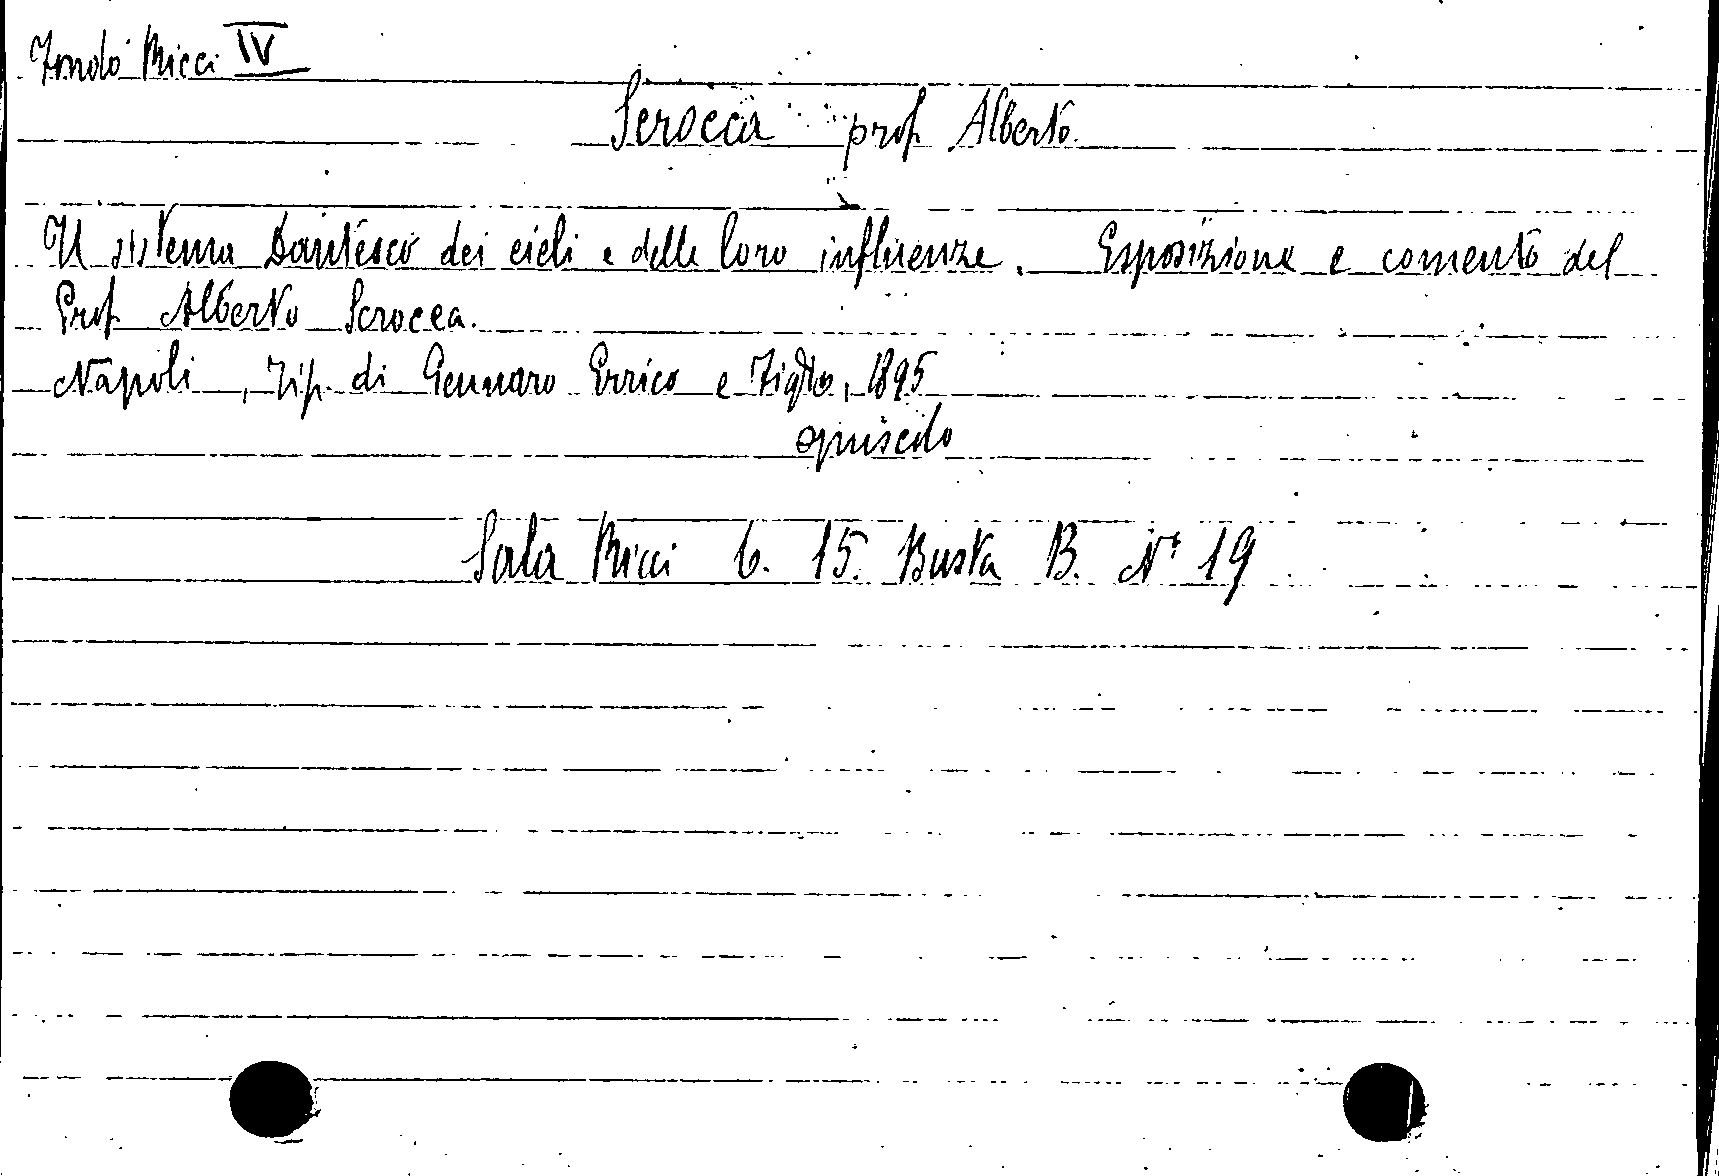 Fondo Ricci IV
Scrocca prof. Alberto.
Il sistema Dantesco dei cieli e delle loro influenze. Esposizione e comento del
Prof. Alberto Scrocca.
Napoli, Tip. di Gennaro Errico e Figlio, 1895
opuscolo
Sala Ricci 6. 15. Busta B. N° 19